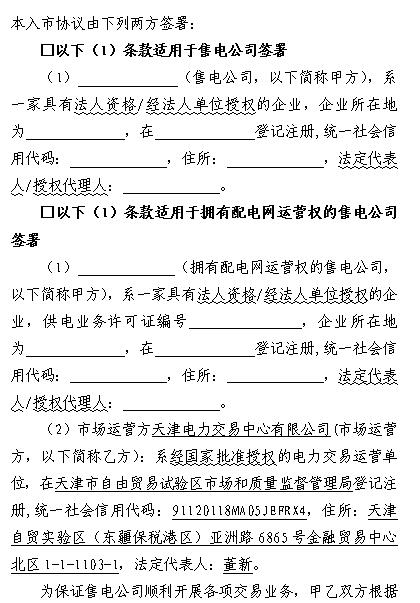 本入市协议由下列两方签署：
□以下（1）条款适用于售电公司签署
（1）____________（售电公司，以下简称甲方），系
一家具有法人资格/经法人单位授权的企业，企业所在地
为____________，在____________登记注册,统一社会信
用代码：____________，住所：____________，法定代表
人/授权代理人：____________。
□以下（1）条款适用于拥有配电网运营权的售电公司
签署
（1）____________（拥有配电网运营权的售电公司，
以下简称甲方），系一家具有法人资格/经法人单位授权的企
业，供电业务许可证编号____________，企业所在地
为____________，在____________登记注册,统一社会信
用代码：____________，住所：____________，法定代表
人/授权代理人：____________。
（2）市场运营方天津电力交易中心有限公司(市场运营
方，以下简称乙方)：系经国家批准授权的电力交易运营单
位，在天津市自由贸易试验区市场和质量监督管理局登记注
册,统一社会信用代码：91120118MA05JBFRX4，住所：天津
自贸实验区（东疆保税港区）亚洲路6865号金融贸易中心
北区1-1-1103-1，法定代表人：董新。
为保证售电公司顺利开展各项交易业务，甲乙双方根据